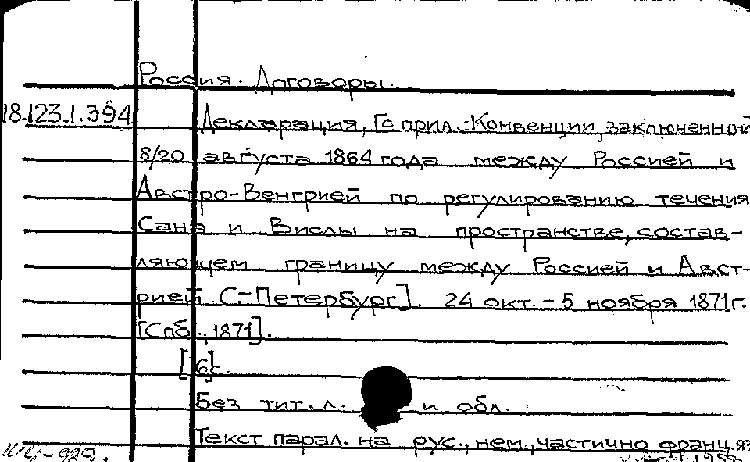 Россия. Договоры.
18.123.1.394
Декларация, [о прил. Конвенции, заключенной
8/20 августа 1864 года между Россией и
Австро-Венгрией по регулированию течения
Сана и Вислы на пространстве, состав-
ляющем границу между Россией и Авст-
рией С-Петербург]. 24 окт. - 5 ноября 1871г.
[Спб., 1871].
[6]с.
Без тит. л. и обл.
Текст парал. на рус., нем., частично франц. яз